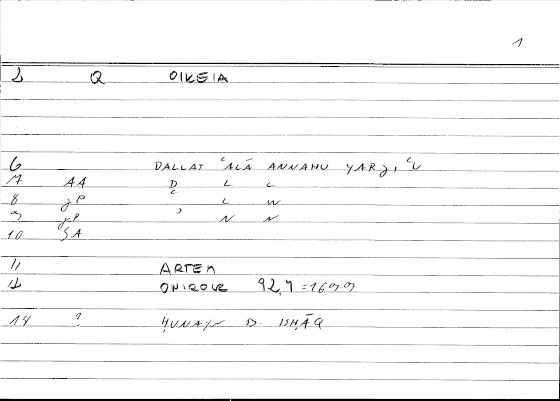 1
2 Q OIKEIA
6 DALLAT ʿALĀ ANNAHU YARJIʿU
7 AA D L L
8 GP C L W
9 GP ʾ N N
10 SA
11 ARTEM
12 ONIROCR 92,4 = 1699
14 ? ḤUNAYN B. ISḤĀQ